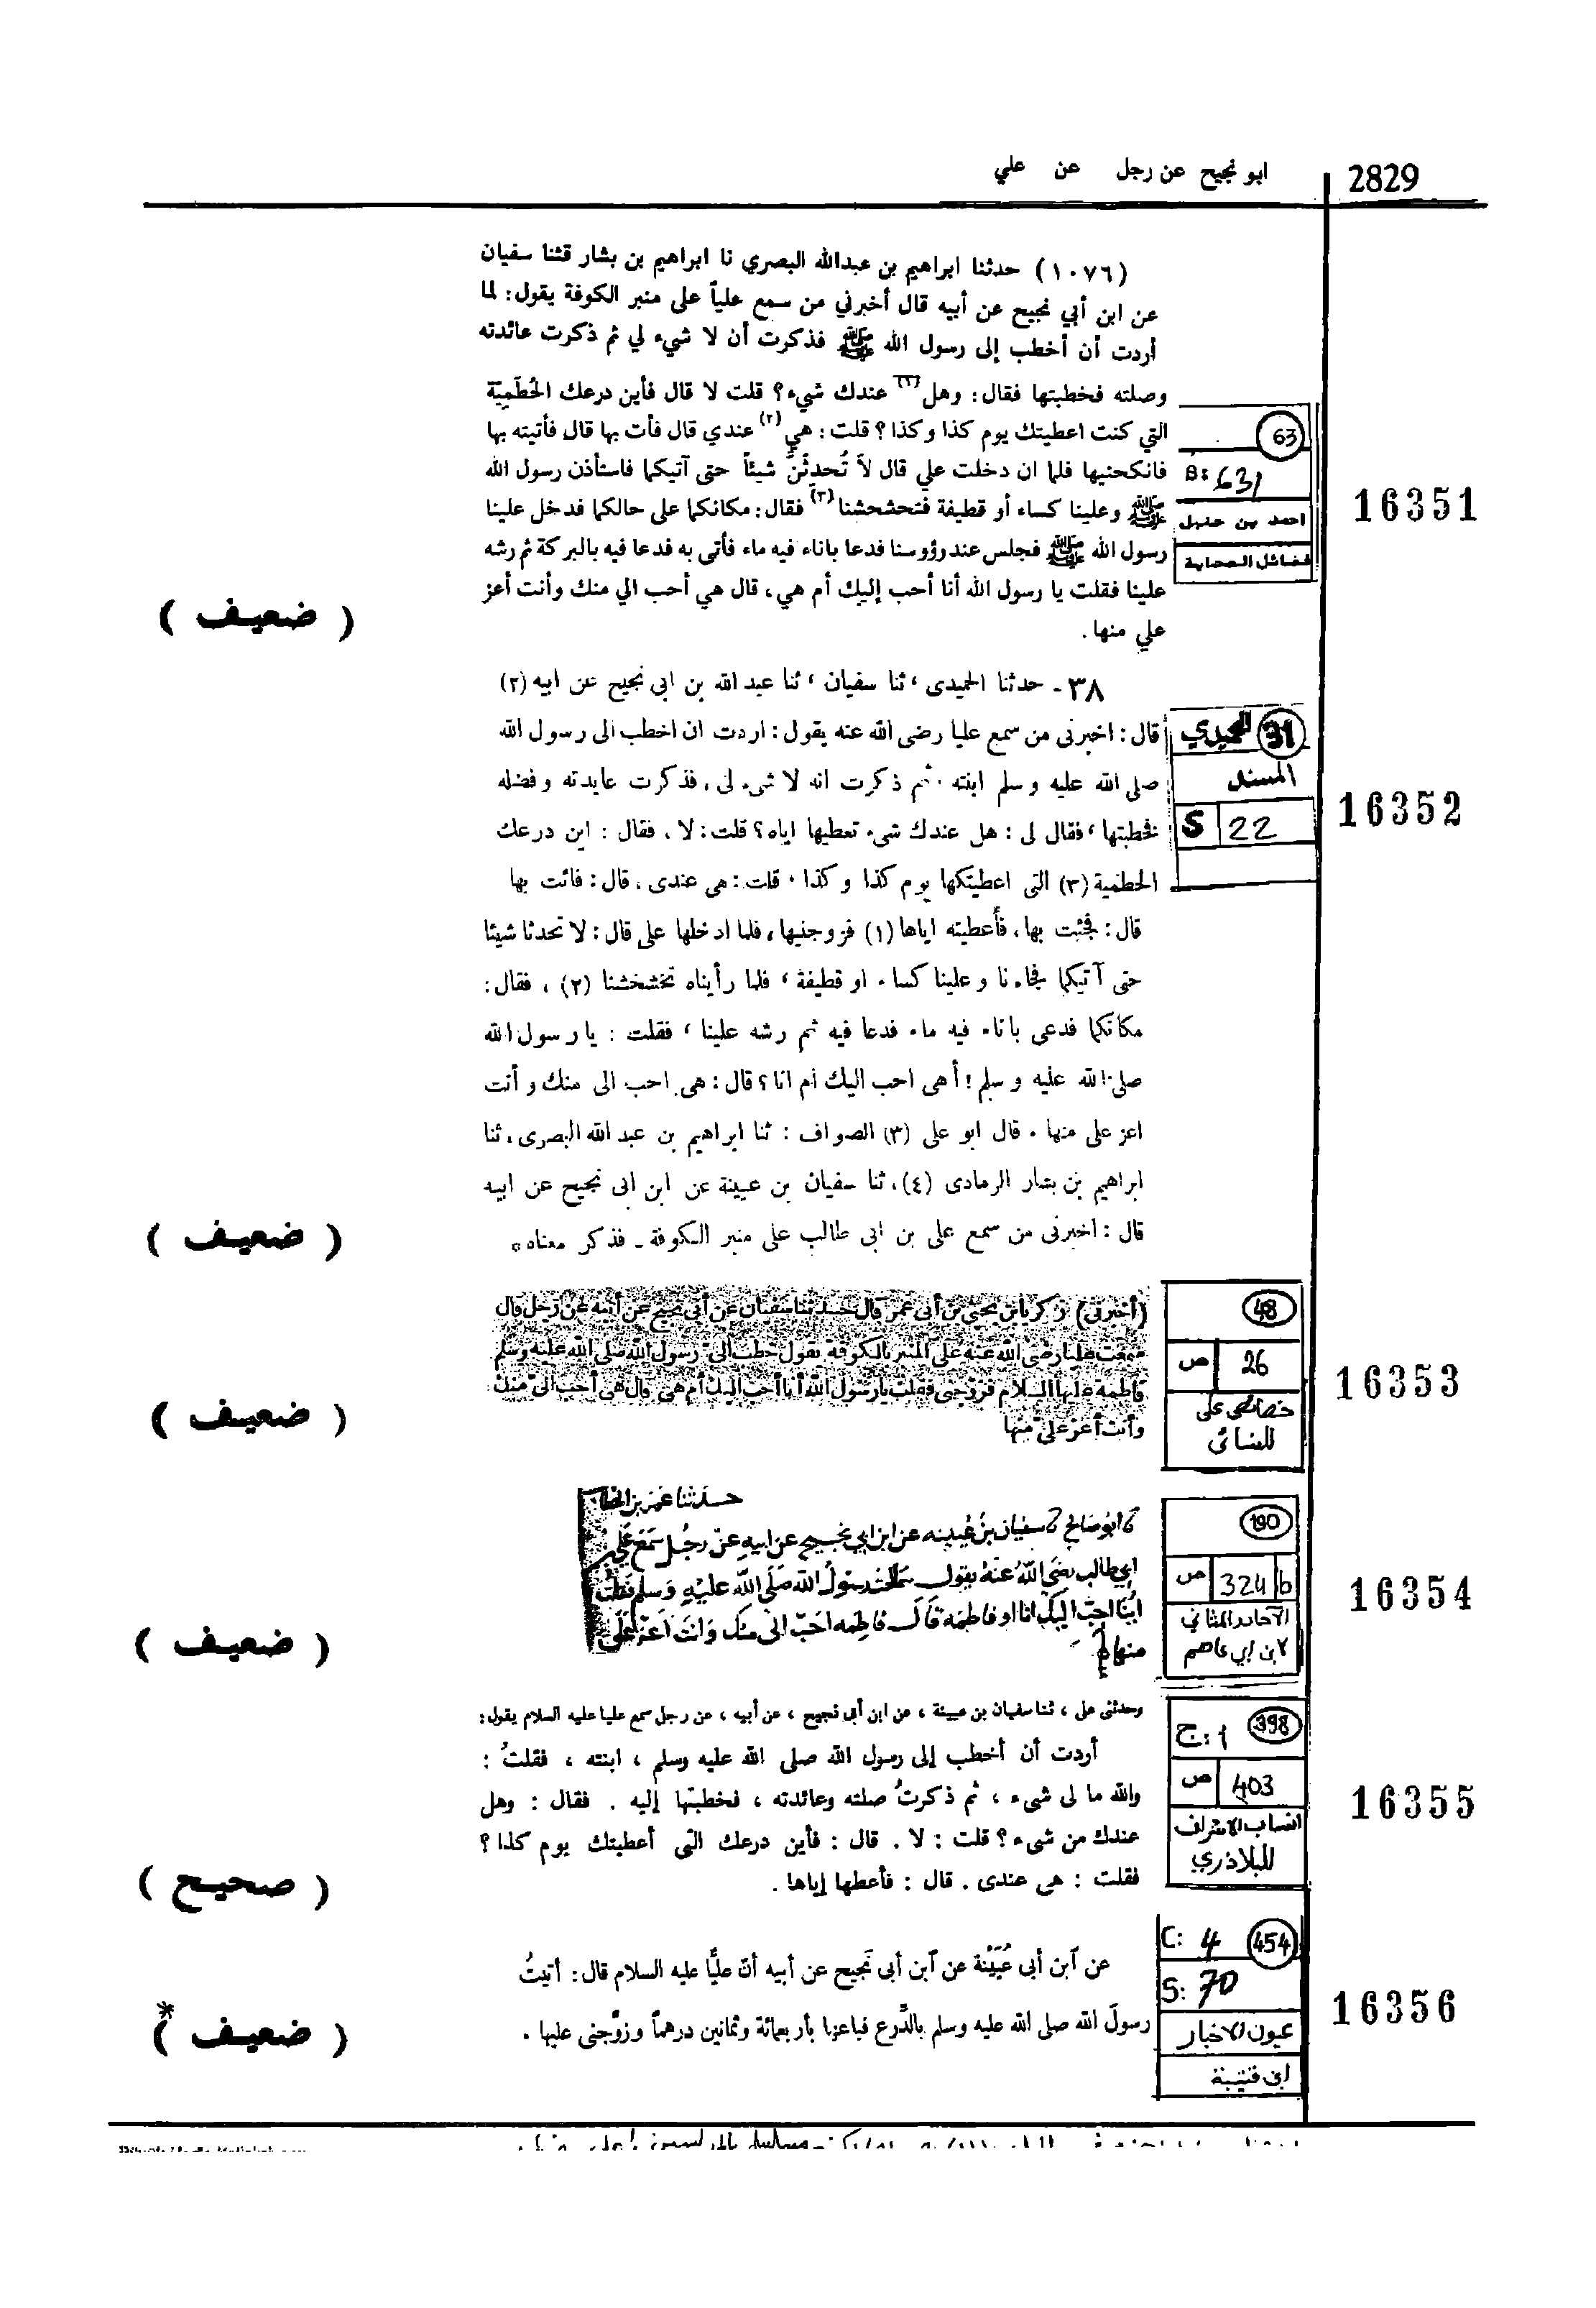 2829
ابو نجيح عن رجل عن علي
(١٠٧٦) حدثنا ابراهيم بن عبدالله البصري نا ابراهيم بن بشار قثنا سفيان
عن ابن أبي نجيح عن أبيه قال أخبرني من سمع علياً على منبر الكوفة يقول: لما
أردت أن أخطب إلى رسول الله ﷺ فذكرت أن لا شيء لي ثم ذكرت عائدته
وصلته فخطبتها فقال: وهل(١) عندك شيء؟ قلت لا قال فأين درعك الحُطَمِيّة
التي كنت اعطيتك يوم كذا وكذا؟ قلت: هي(٢) عندي قال فأت بها قال فأتيته بها
فانكحنيها فلما ان دخلت علي قال لاَ تُحدثَنَّ شيئاً حتى آتيكما فاستأذن رسول الله
ﷺ وعلينا كساء أو قطيفة فتحشحشنا(٣) فقال: مكانكما على حالكما فدخل علينا
رسول الله ﷺ فجلس عند رؤوسنا فدعا باناء فيه ماء فأتى به فدعا فيه بالبركة ثم رشه
علينا فقلت يا رسول الله أنا أحب إليك أم هي، قال هي أحب الي منك وأنت أعز
علي منها.
63
B: 631
احمد بن حنبل
فضائل الصحابة
16351
( ضعيف )
٣٨- حدثنا الحميدى، ثنا سفيان، ثنا عبد الله بن ابى نجيح عن ابيه (٢)
قال: اخبرنى من سمع عليا رضى الله عنه يقول: اردت ان اخطب الى رسول الله
صلى الله عليه وسلم ابنته، ثم ذكرت انه لا شىء لى، فذكرت عايدته وفضله
فخطبتها، فقال لى: هل عندك شىء تعطيها اياه؟ قلت: لا، فقال: اين درعك
الحطمية (٣) التى اعطيتكها يوم كذا وكذا. قلت: هى عندى، قال: فائت بها
قال: فجئت بها، فأعطيته اياها (١) فزوجنيها، فلما ادخلها على قال: لا تحدثا شيئا
حتى آتيكما فجاءنا وعلينا كساء او قطيفة، فلما رأيناه تخشخشنا (٢)، فقال:
مكانكما فدعى باناء فيه ماء فدعا فيه ثم رشه علينا، فقلت: يا رسول الله
صلى الله عليه وسلم! أهى احب اليك ام انا؟ قال: هى احب الى منك وأنت
اعز على منها. قال ابو على (٣) الصواف: ثنا ابراهيم بن عبد الله البصرى، ثنا
ابراهيم بن بشار الرمادى (٤)، ثنا سفيان بن عيينة عن ابن ابى نجيح عن ابيه
قال: اخبرنى من سمع على بن ابى طالب على منبر الكوفة - فذكر معناه.
31 الحميدي
المسند
S 22
16352
( ضعيف )
(أخبرنى) زكريا بن يحيى بن أبى عمر قال حدثنا سفيان عن أبى نجيح عن أبيه عن رجل قال
سمعت عليا رضى الله عنه على المنبر بالكوفة يقول خطبت الى رسول الله صلى الله عليه وسلم
فاطمة عليها السلام فزوجنى فقلت يا رسول الله أنا أحب اليك أم هى قال هى أحب الى منك
وأنت أعز على منها
48
ص 26
خصائص على
للنسائى
16353
( ضعيف )
حدثنا عمر بن الخطا
ابو صالح سفيان بن عيينه عن ابن ابي نجيح عن ابيه عن رجل سمع علي بن
ابي طالب رضي الله عنه يقول سالت رسول الله صلى الله عليه وسلم فقلت
اينا احب اليك انا او فاطمه قال فاطمه احب الي منك وانت اعز علي
منها
190
ص 324 b
الآحاد المثاني
لابن ابي عاصم
16354
( ضعيف )
وحدثنى على، ثنا سفيان بن عيينة، عن ابن أبى نجيح، عن أبيه، عن رجل سمع عليا عليه السلام يقول:
أردت أن أخطب إلى رسول الله صلى الله عليه وسلم، ابنته، فقلتُ:
والله ما لى شىء، ثم ذكرتُ صلته وعائدته، فخطبتها إليه. فقال: وهل
عندك من شىء؟ قلت: لا. قال: فأين درعك التى أعطيتك يوم كذا؟
فقلت: هى عندى. قال: فأعطها إياها.
398
ج: ١
ص 403
انساب الاشراف
للبلاذري
16355
( صحيح )
عن آبن أبى عُيَيْنة عن آبن أبى نَجيح عن أبيه أنّ عليًّا عليه السلام قال: أتيتُ
رسولَ الله صلى الله عليه وسلم بالدِّرع فباعنها بأربعمائة وثمانين درهماً وزوَّجنى عليها.
454
C: 4
S: 70
عيون الاخبار
ابن قتيبة
16356
( ضعيف )*